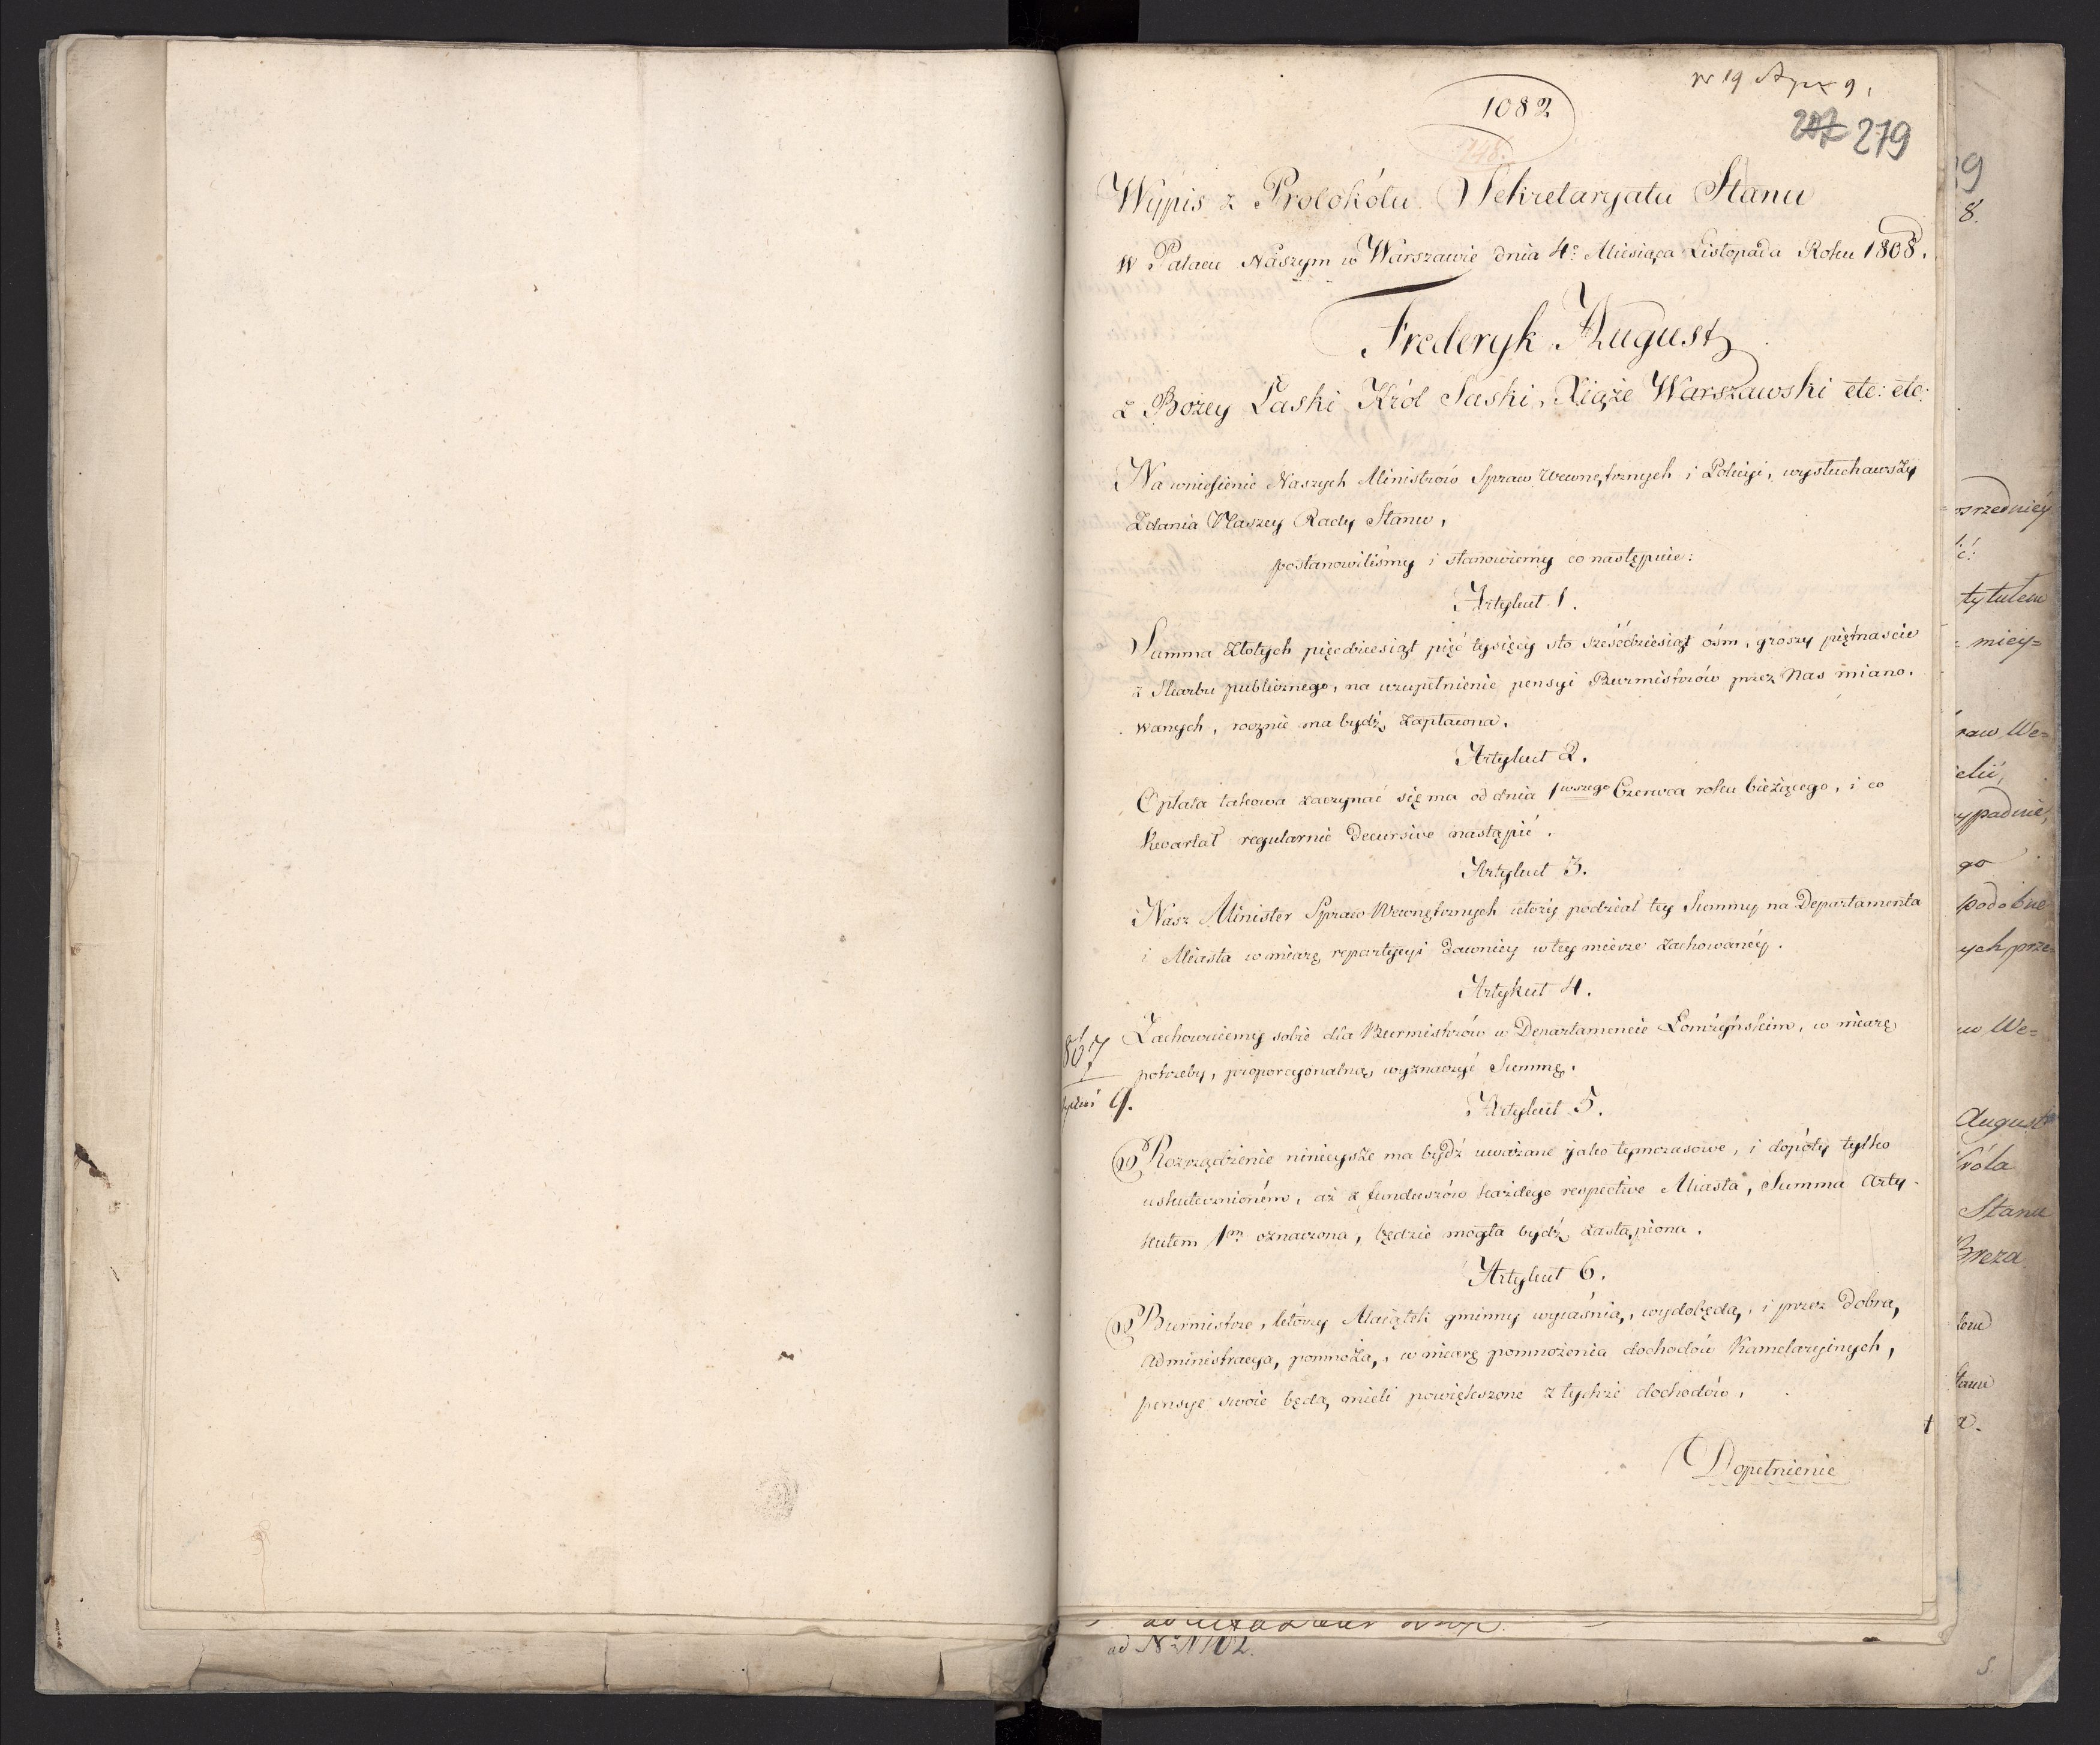 1082
748.
207 279
Wÿpis z Protokólu Sekretaryatu Stanu
w Pałacu Naszym w Warszawie dnia 4º Miesiąca Listopada Roku 1808.
Frederyk August
z Bożey Łaski Król Saski, Xiąże Warszawski etc: etc:
Na wniesienie Naszych Ministrów Spraw Wewnętrznych i Policyi, wysłuchawszy
Zdania Naszey Rady Stanu,
postanowiliśmy i stanowiemy co następuie:
Artykuł 1.
Summa Złotych pięćdziesiąt pięć tysięcy sto sześćdziesiąt ósm, groszy piętnaście
z Skarbu publicznego, na uzupełnienie pensyi Burmistrzów przez Nas miano.
wanych, rocznie ma bydź zapłacona.
Artykuł 2.
Opłata takowa zaczynać się ma od dnia 1wszego Czerwca roku bieżącego, i co
Kwartał regularnie decursive nastąpić.
Artykuł 3.
Nasz Minister Spraw Wewnętrznych ułoży podział tey Summy na Departamenta
i Miasta w miarę repartycyi dawniey w tey mierze zachowanéy.
Artykuł 4.
Zachowuiemy sobie dla Burmistrzów w Departamencie Łomżyńskim, w miarę
potrzeby, proporcyonalną wyznaczyć Summę.
867
9.
Artykuł 5.
Rozrządzenie ninieysze ma bydź uważane jako tymczasowe, i dopóty tylko
uskutecznioném, aż z funduszów każdego respective Miasta, Summa Arty-
kułem 1m oznaczona, będzie mogła bydź zastąpiona.
Artykuł 6.
Burmistrze, którzy Maiątek gminny wyiaśnią, wydobędą, i przez dobrą
administracyą, pomnożą, w miarę pomnożenia dochodów Kamelaryinych,
pensye swoie będą mieli powiększone z tychże dochodów.
Dopełnienie
ad Nº 1102.
9
8.
tytułem
miey=
raw We=
ypadnie,
go
podobne
ych prze=
w We=
August
Króla
Stanu
Breza